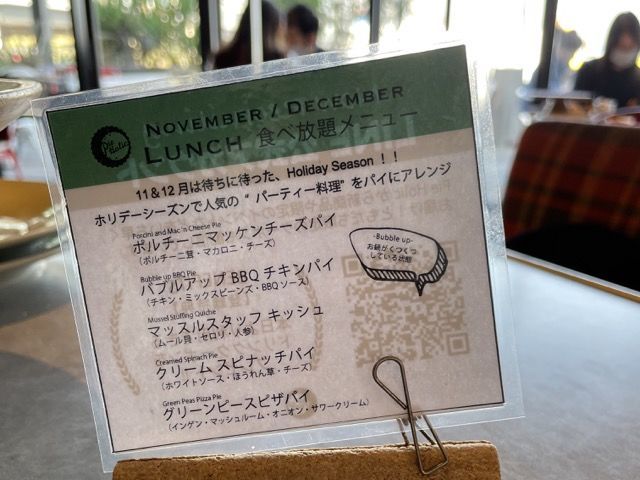 Pie Holic
NOVEMBER / DECEMBER
LUNCH 食べ放題メニュー
11&12月は待ちに待った、Holiday Season！！
ホリデーシーズンで人気の“ パーティー料理”をパイにアレンジ
Porcini and Mac 'n Cheese Pie
ポルチーニマッケンチーズパイ
（ポルチーニ茸・マカロニ・チーズ）
Bubble up BBQ Pie
バブルアップ BBQ チキンパイ
（チキン・ミックスビーンズ・BBQ ソース）
-Bubble up-
お鍋がぐつぐつ
している状態
Mussel Stuffing Quiche
マッスルスタッフ キッシュ
（ムール貝・セロリ・人参）
Creamed Spinach Pie
クリーム スピナッチパイ
（ホワイトソース・ほうれん草・チーズ）
Green Peas Pizza Pie
グリーンピースピザパイ
（インゲン・マッシュルーム・オニオン・サワークリーム）